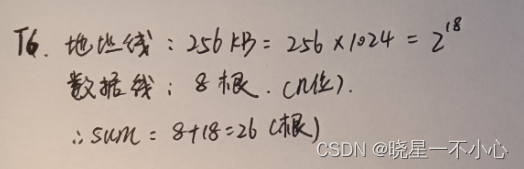 T6. 地址线：256KB = 256×1024 = 2^18
数据线：8根.(n位).
∴sum = 8+18=26 (根)
CSDN @晓星一不小心